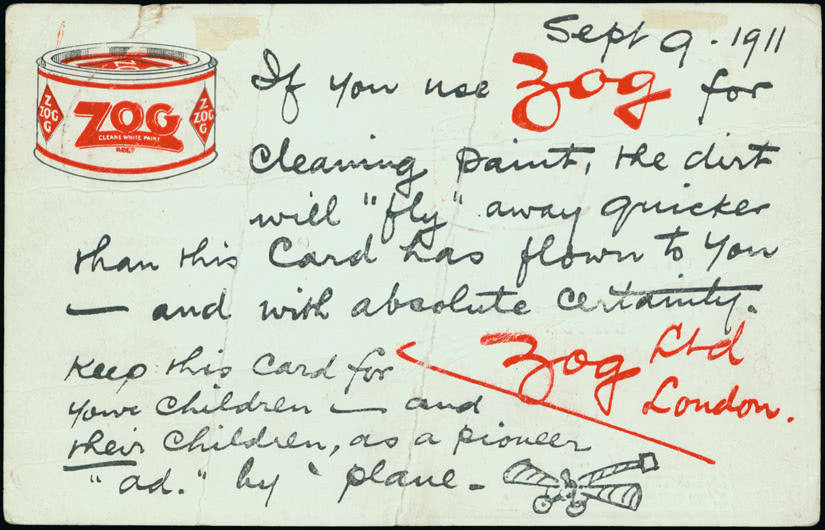 Sept 9 · 1911
ZOG
ZOG
CLEANS WHITE PAINT
REGD
ZOG
If you use Zog for
cleaning paint, the dirt
will "fly" away quicker
than this Card has flown to you
— and with absolute certainty.
Zog Ltd
London.
Keep this Card for
your children — and
their children, as a pioneer
"ad." by 'plane -